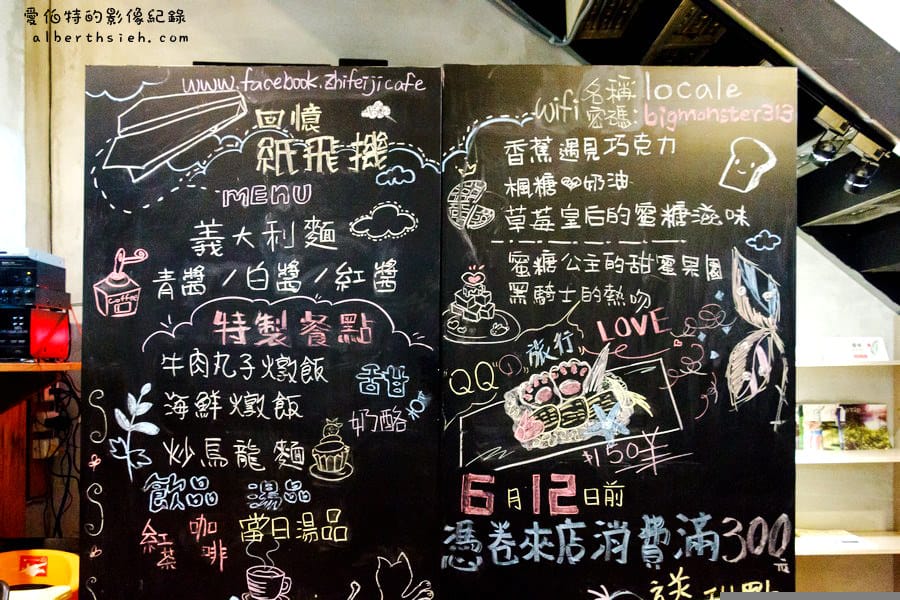 愛伯特的影像紀錄
alberthsieh.com
www.facebook.zhifeijicafe
回憶
紙飛機
MENU
義大利麵
青醬/白醬/紅醬
coffee
特製餐點
牛肉丸子燉飯
海鮮燉飯
炒烏龍麵
香甜
奶酪
飲品
湯品
紅茶
咖啡
當日湯品
wifi 名稱:locale
密碼:bigmonster313
香蕉遇見巧克力
楓糖奶油
草莓皇后的蜜糖滋味
蜜糖公主的甜蜜果園
黑騎士的熱吻
LOVE
QQ
旅行
$150
6月12日前
憑卷來店消費滿300元